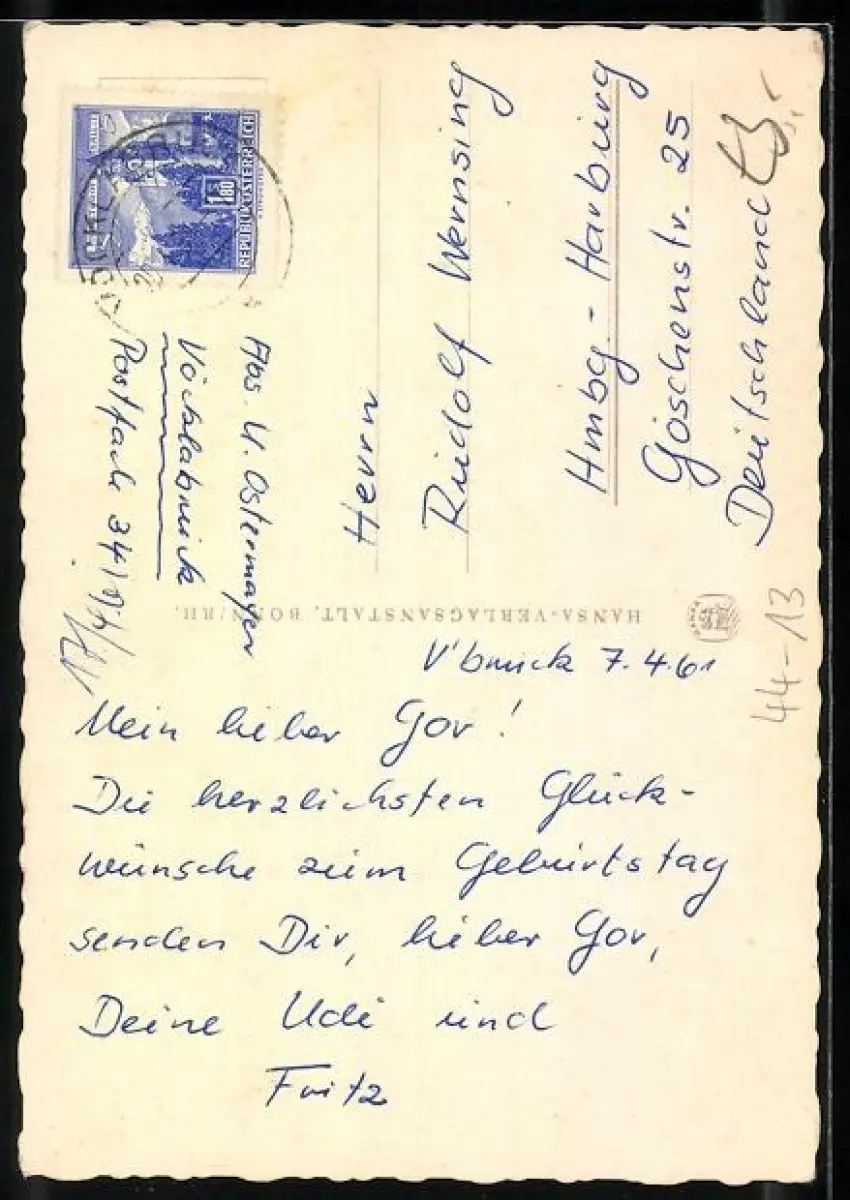 REPUBLIK ÖSTERREICH
1.80
Abs. U. Ostermayer
Vöcklabruck
Postfach 34
Herrn
Rudolf Wernsing
Hmbg.-Harburg
Göschenstr. 25
Deutschland
HANSA-VERLAGSANSTALT, BONN/RH.
44-13
V'bruck 7.4.61
Mein lieber Gov!
Die herzlichsten Glück-
wünsche zum Geburtstag
senden Dir, lieber Gov,
Deine Udi und
Fritz